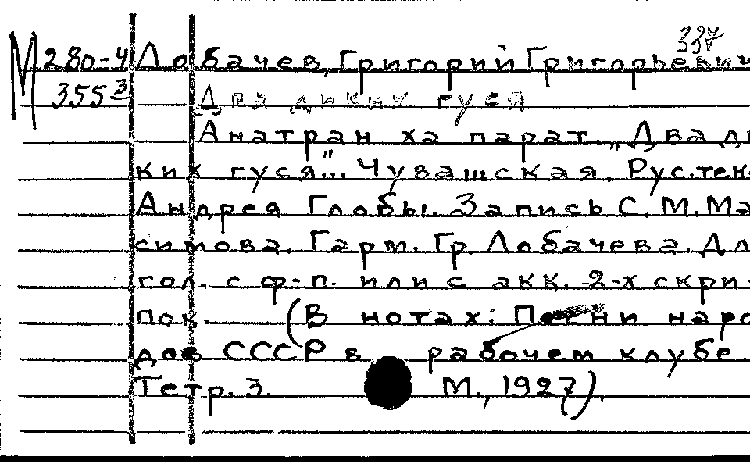 337
М 280-4 Лобачев, Григорий Григорьевич
355 3 Два диких гуся
Анатран ха парат „Два ди
ких гуся"... Чувашская. Рус. тек
Андрея Глобы. Запись С. М. Ма
симова. Гарм. Гр. Лобачева. Дл
гол. с ф-п. или с акк. 2-х скри-
пок. (В нотах: Песни наро
дов СССР в рабочем клубе
Тетр. 3. М., 1927).